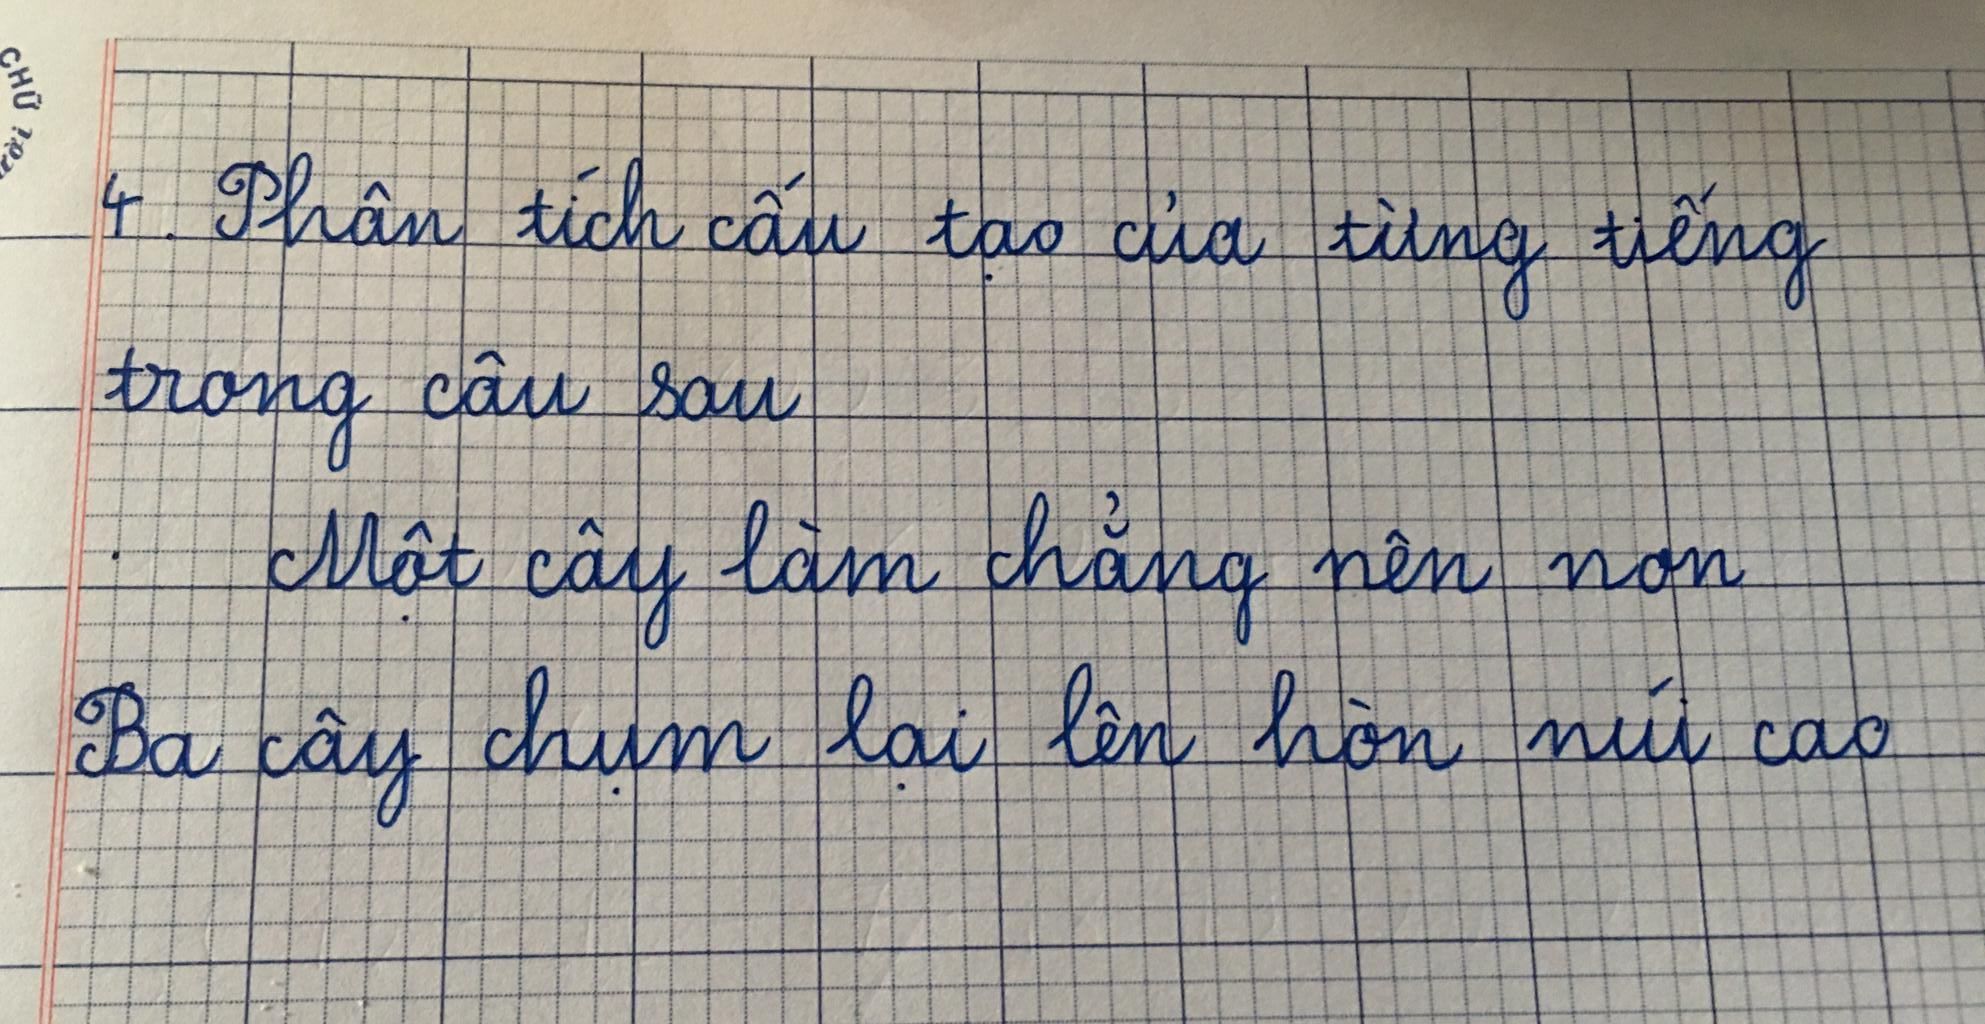 CHỮ
4. Phân tích cấu tạo của từng tiếng
trong câu sau
Một cây làm chẳng nên non
Ba cây chụm lại lên hòn núi cao